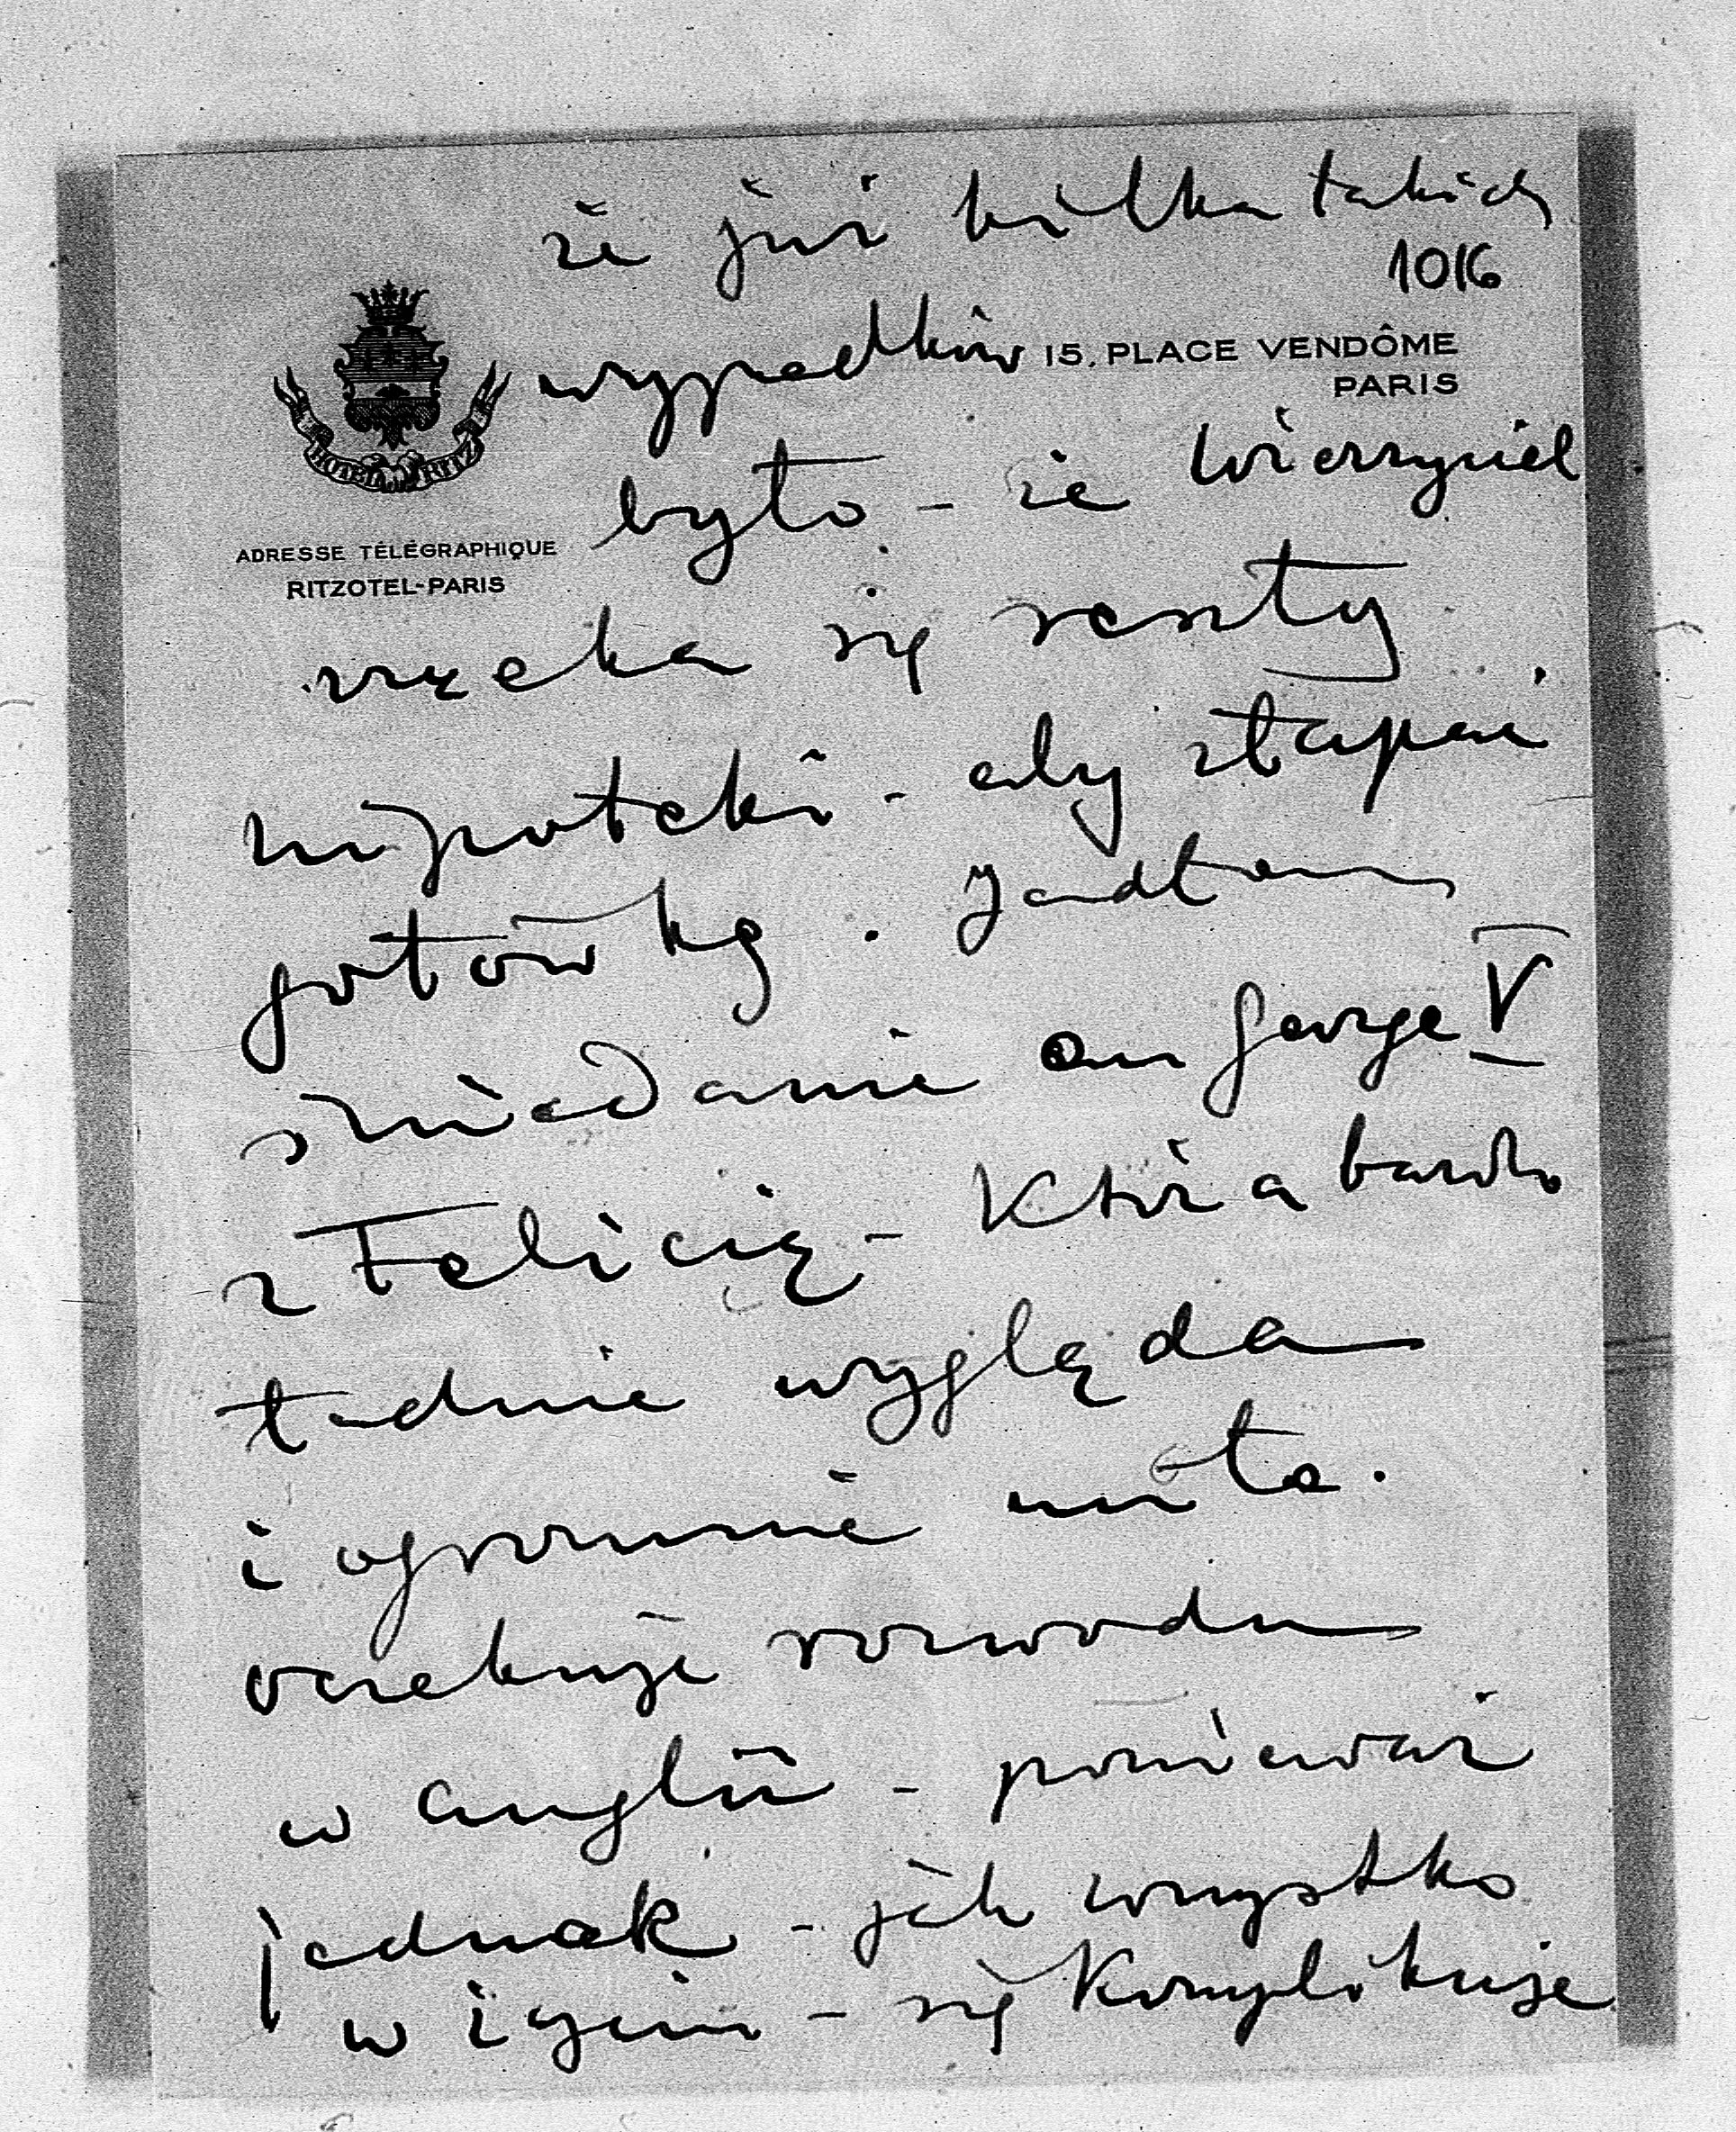 że już kilka takich
1016
wypadków
15, PLACE VENDÔME
PARIS
HOTEL RITZ
było - że wierzyciel
ADRESSE TÉLÉGRAPHIQUE
RITZOTEL-PARIS
zrzeka się reszty
hipoteki - aby złapać
gotówkę. Jadłam
śniadanie au George V
z Felicią - która bardzo
ładnie wygląda
i ogromnie miła.
oczekuje rozwodu
w Anglii - ponieważ
jednak - jak wszystko
w życiu - się komplikuje